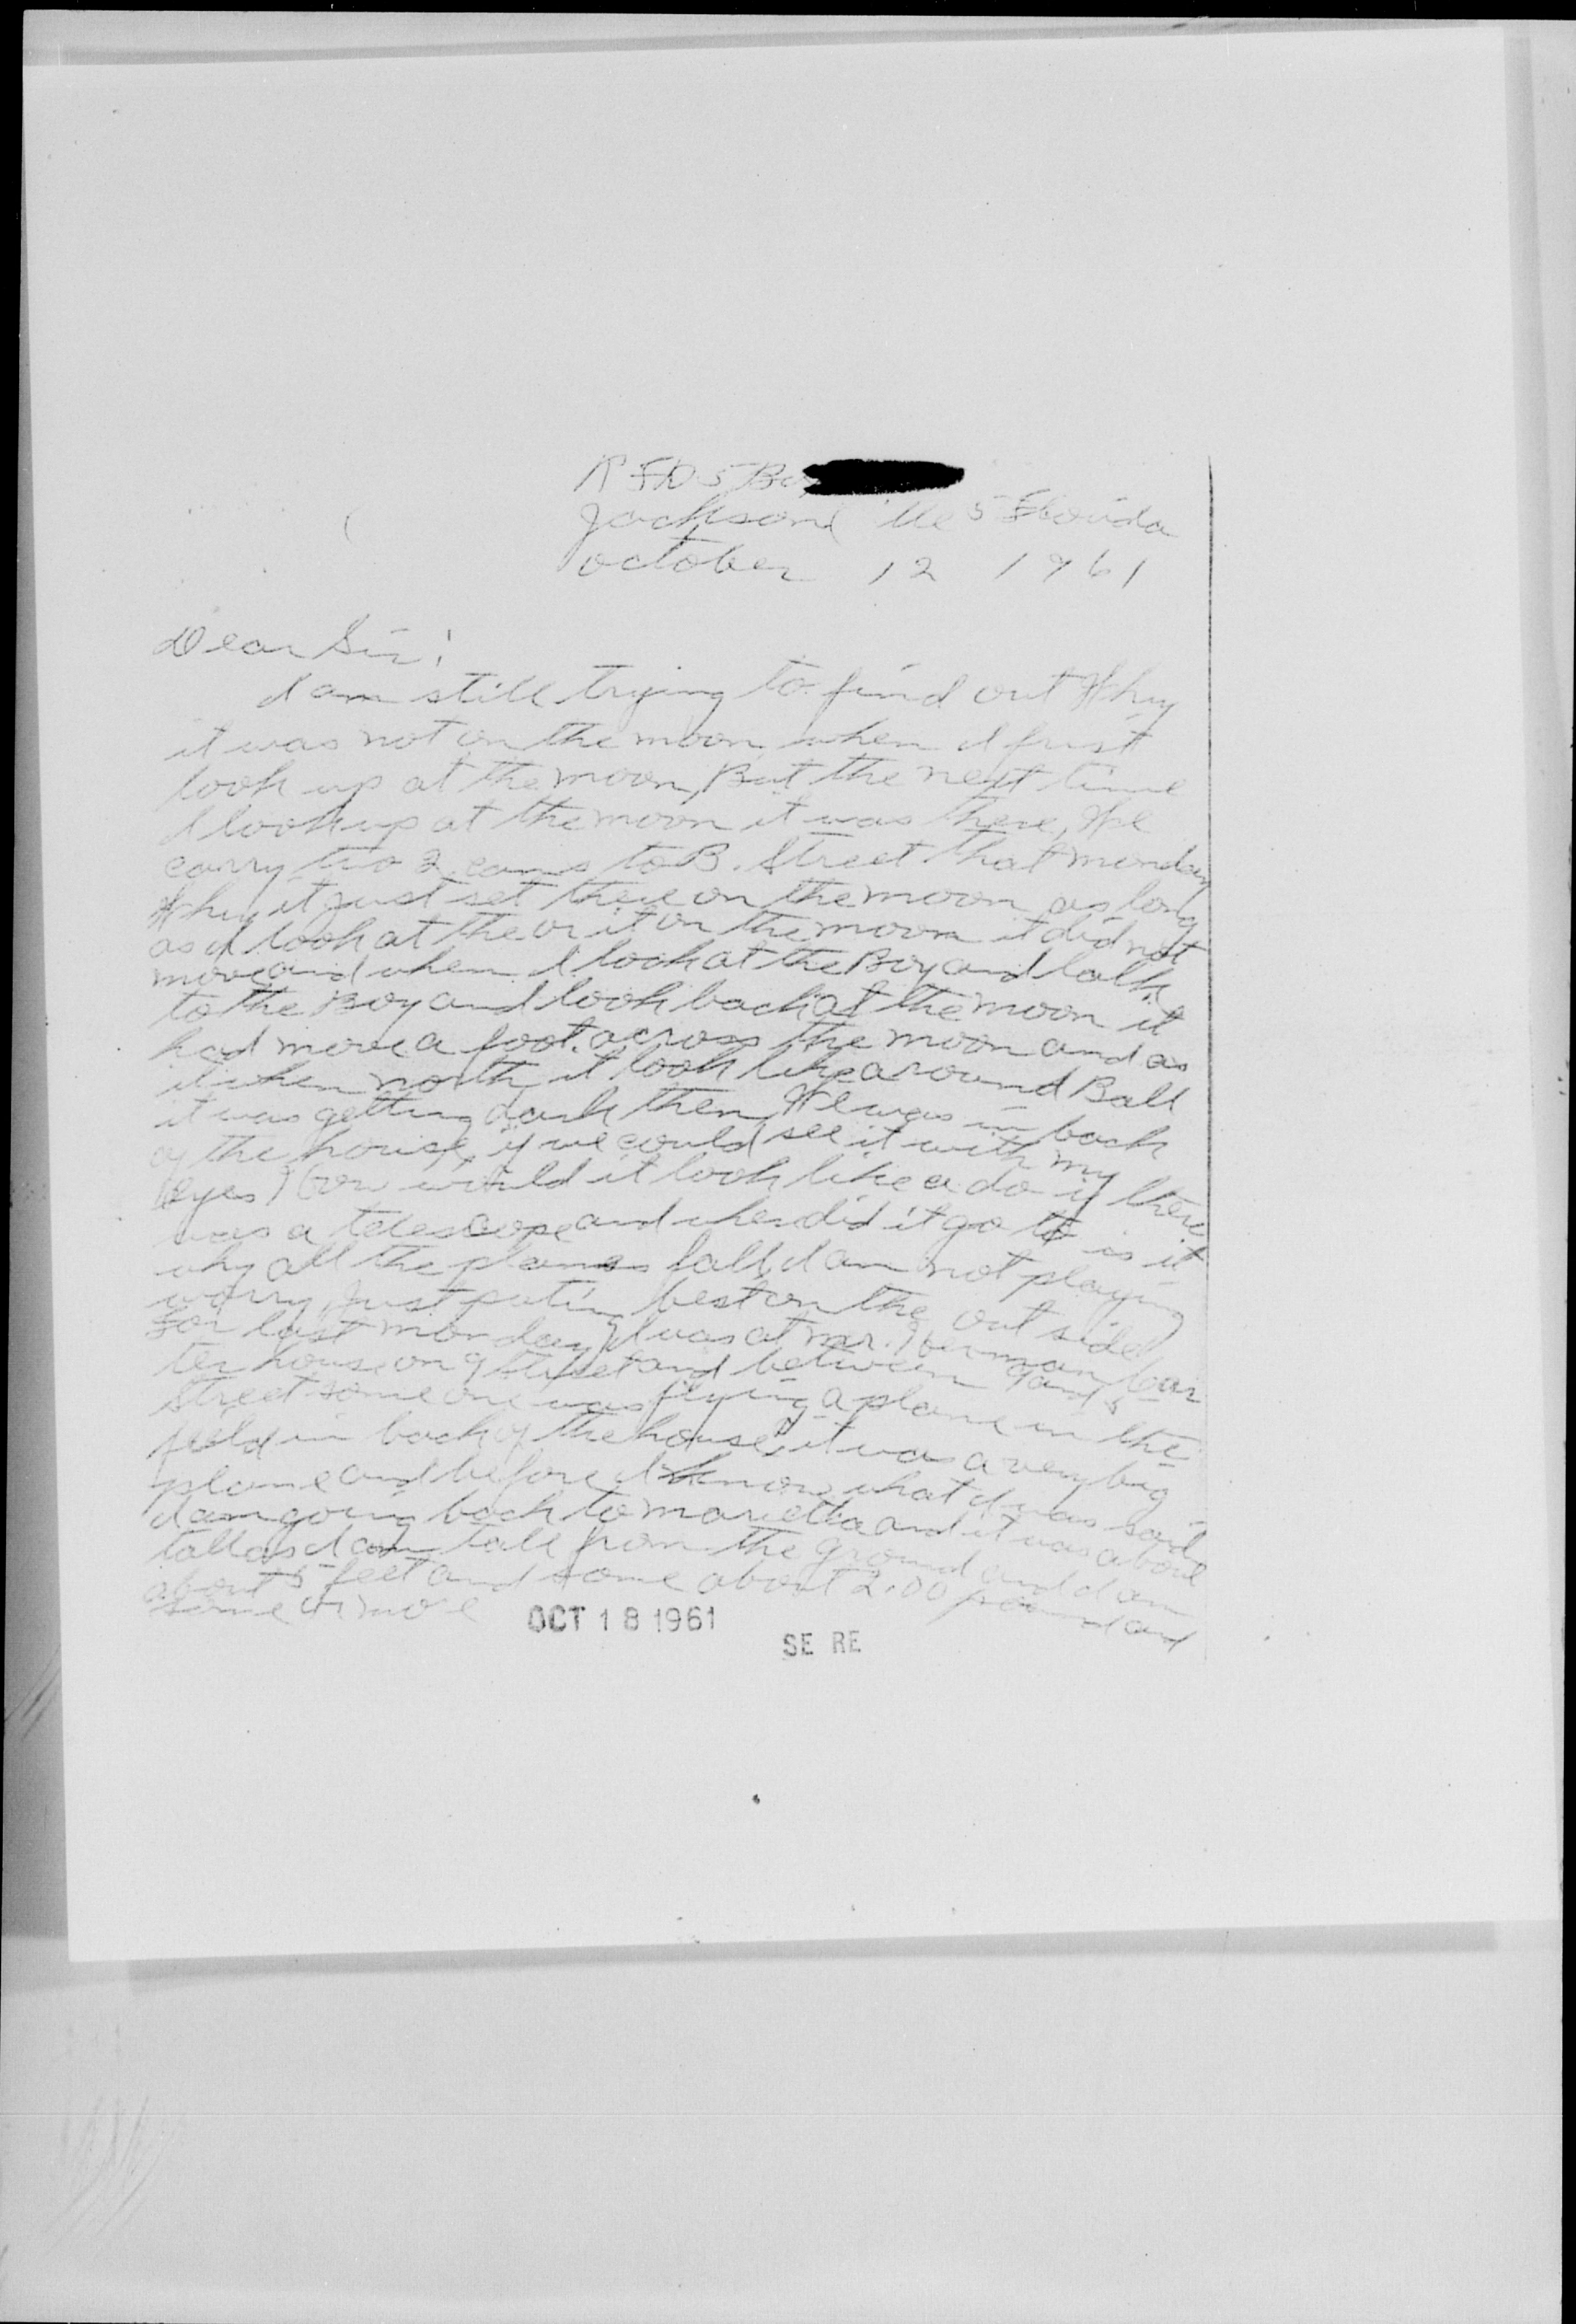 RFD 5 Bo
Jacksonville 5 Florida
October 12 1961
Dear Sir!
I am still trying to find out Why
it was not on the moon when I frist
look up at the moon, But the next time
I look up at the moon it was there, We
carry two 2 cans to B. Street that monday
Why it just set there on the moon as long
as I look at the or it on the moon it did not
move and when I look at the Boy and talk
to the Boy and look back at the moon it
had move a foot across the moon and as
it when north, it look like a round Ball
it was getting dark then, We was in back
of the house, if we could see it with my
eyes How would it look like a do if there
was a telescope and where did it go to is it
why all the planes fall, I am not playing
worry Just puting best on the out side
For last monday I was at mr. Herman Car
ter house on 9 street and between 9 and 8
street some one was flying a plane in the
feild in back of the house, it was a very big
plane and before I know what I was said
I am going back to marietta and it was above
tall as I am tall from the ground and I am
about 5 feet and some about 2.00 pound and
some or more
OCT 18 1961
SE RE